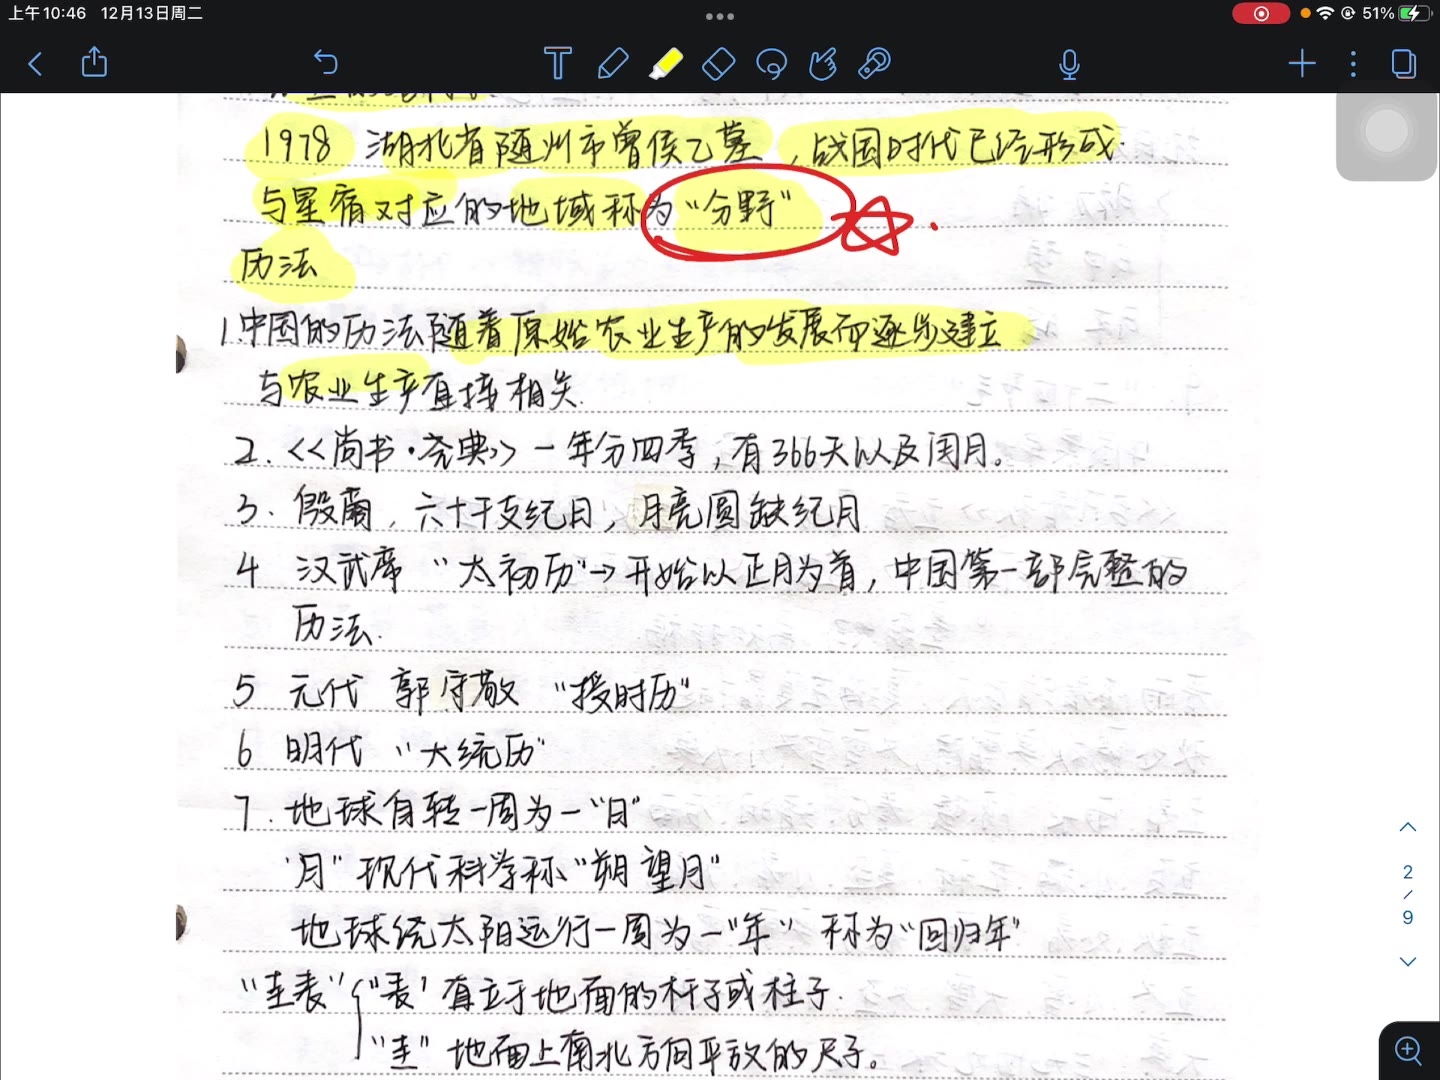 上午10:46 12月13日周二
51%
1978 湖北省随州市曾侯乙墓，战国时代已经形成.
与星宿对应的地域称为“分野”
历法
1.中国的历法随着原始农业生产的发展而逐步建立
与农业生产直接相关.
2. <<尚书·尧典>> 一年分四季，有366天以及闰月。
3. 殷商，六十干支纪日，月亮圆缺纪月
4 汉武帝 “太初历”→开始以正月为首，中国第一部完整的
历法.
5 元代 郭守敬 “授时历”
6 明代 “大统历”
7. 地球自转一周为一“日”
“月” 现代科学称“朔望月”
地球绕太阳运行一周为一“年” 称为“回归年”
“圭表” “表” 直立于地面的杆子或柱子.
“圭” 地面上南北方向平放的尺子。
2
/
9